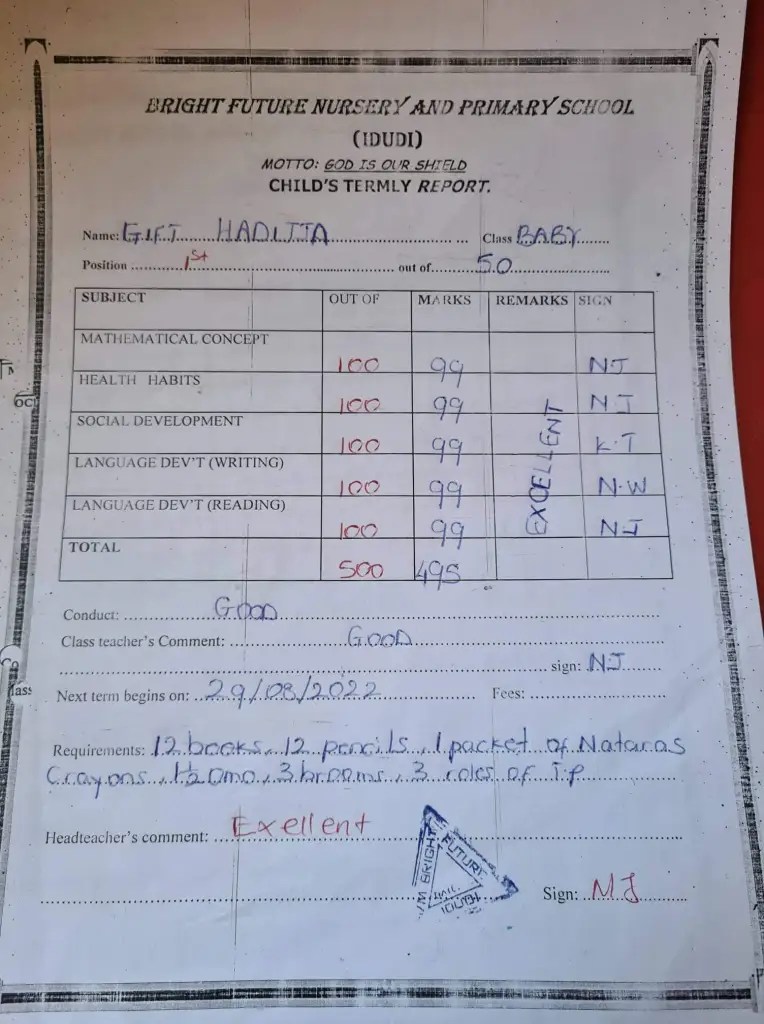 BRIGHT FUTURE NURSERY AND PRIMARY SCHOOL
(IDUDI)
MOTTO: GOD IS OUR SHIELD
CHILD'S TERMLY REPORT.
Name: GIFT HADIJJA Class BABY
Position 1st out of 50
SUBJECT OUT OF MARKS REMARKS SIGN
MATHEMATICAL CONCEPT 100 99 NJ
HEALTH HABITS 100 99 NJ
SOCIAL DEVELOPMENT 100 99 K.T
LANGUAGE DEV'T (WRITING) 100 99 N.W
LANGUAGE DEV'T (READING) 100 99 NJ
EXCELLENT
TOTAL 500 495
Conduct: GOOD
Class teacher's Comment: GOOD
sign: NJ
Next term begins on: 29/08/2022 Fees:
Requirements: 12 books, 12 pencils, 1 packet of Nataras
Crayons, 1/2 omo, 3 brooms, 3 roles of T.P
Headteacher's comment: Exellent
BRIGHT FUTURE
IDUDI
Sign: MJ